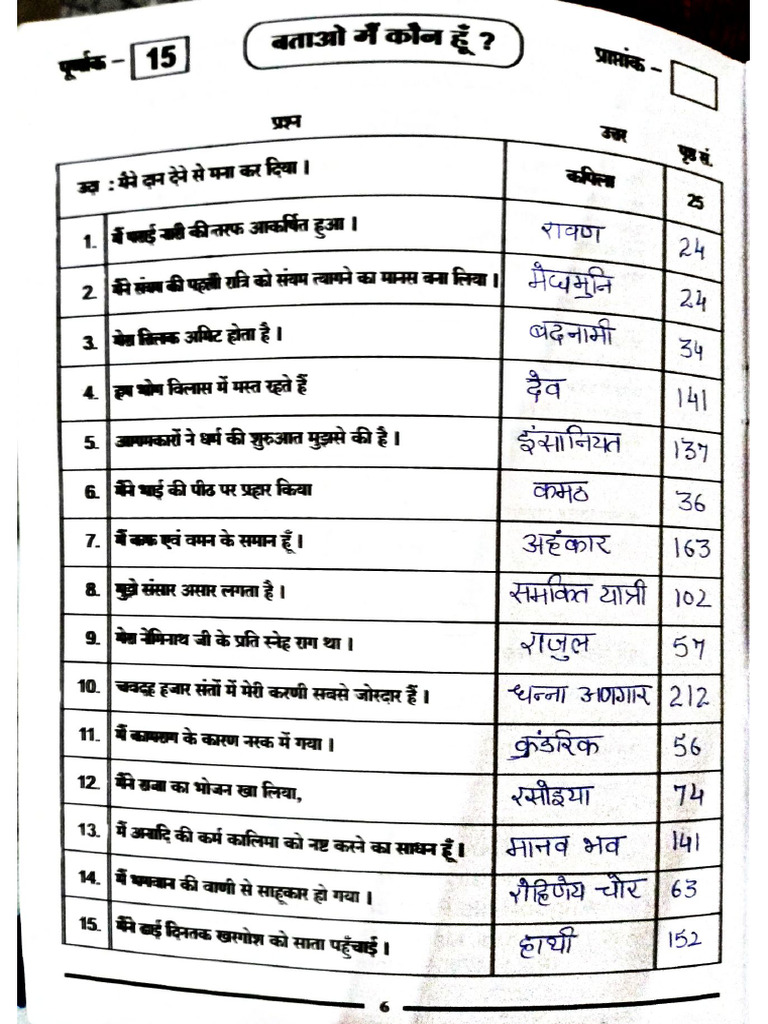 बताओ मैं कौन हूँ ?
पूर्णांक - 15
प्राप्तांक -
प्रश्न उत्तर पृष्ठ सं.
उदा : मैंने दान देने से मना कर दिया । कपिला 25
1. मैं पराई नारी की तरफ आकर्षित हुआ । रावण 24
2. मैंने संयम की पहली रात्रि को संयम त्यागने का मानस बना लिया । मेघमुनि 24
3. मेरा तिलक अमिट होता है । बदनामी 34
4. हम भोग विलास में मस्त रहते हैं देव 141
5. आगमकारों ने धर्म की शुरुआत मुझसे की है । इंसानियत 137
6. मैंने भाई की पीठ पर प्रहार किया कमठ 36
7. मैं कफ एवं वमन के समान हूँ । अहंकार 163
8. मुझे संसार असार लगता है । समकित यात्री 102
9. मेरा नेमिनाथ जी के प्रति स्नेह राग था । राजुल 57
10. चवदह हजार संतों में मेरी करणी सबसे जोरदार हैं । धन्ना अणगार 212
11. मैं कामराग के कारण नरक में गया । कुंडरिक 56
12. मैंने राजा का भोजन खा लिया, रसोइया 74
13. मैं अनादि की कर्म कालिमा को नष्ट करने का साधन हूँ । मानव भव 141
14. मैं भगवान की वाणी से साहूकार हो गया । रोहिणेय चोर 63
15. मैंने ढाई दिनतक खरगोश को साता पहुँचाई । हाथी 152
6